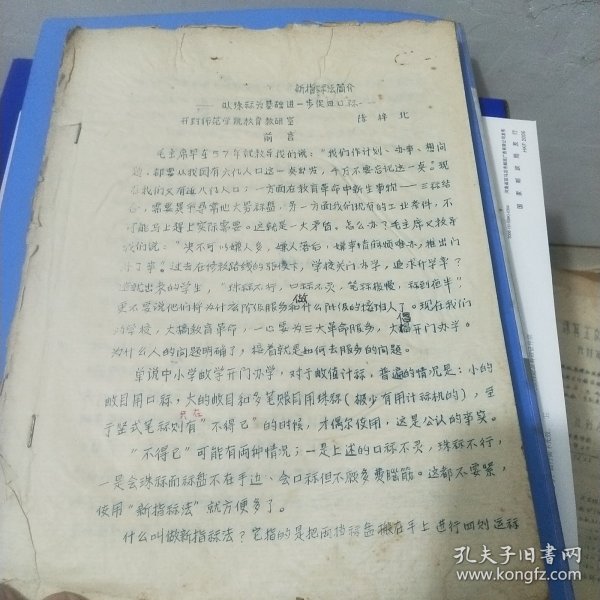 新指祘法简介
——以珠祘为基础进一步促进口祘——
开封师范学院教育教研室 陈梓北
前言
毛主席早在57年就教导我们说：“我们作计划、办事、想问
题，都要从我国有六亿人口这一点出发，千万不要忘记这一点。”现
在我们又有近八亿人口；一方面在教育革命中新生事物——三祘结
合，需要
可能马上赶上实际需要。这就是一大矛盾。怎么办？毛主席又教导
我们说：“决不可以嫌人多，嫌人落后，嫌事情麻烦难办，推出门
外了事。”过去在修教路线的影响下，学校关门办学，
造就出来的学生，“珠祘不行，口祘不灵，笔祘极慢，祘到夜半”
更不要说他们将为什么阶级服务和做什么阶级的接班人了。现在我们
的学校，大搞教育革命，一心要为三大革命服务，大搞开门办学。
为什么人的问题明确了，接着就是如何去服务的问题。
单说中小学数学开门办学，对于数值计祘，普遍的情况是：小的
数目用口祘，大的数目和多笔账目用珠祘（极少有用计祘机的），至
于竖式笔祘则只在有“不得已”的时候，才偶尔使用，这是公认的事实。
“不得已”可能有两种情况；一是上述的口祘不灵，珠祘不行，
一是会珠祘而祘盘不在手边、会口祘但不愿多费脑筋。这都不要紧，
使用“新指祘法”就方便多了。
什么叫做新指祘法？它指的是把两档祘盘搬在手上进行四则运祘
孔夫子旧书网
www.kongfz.com